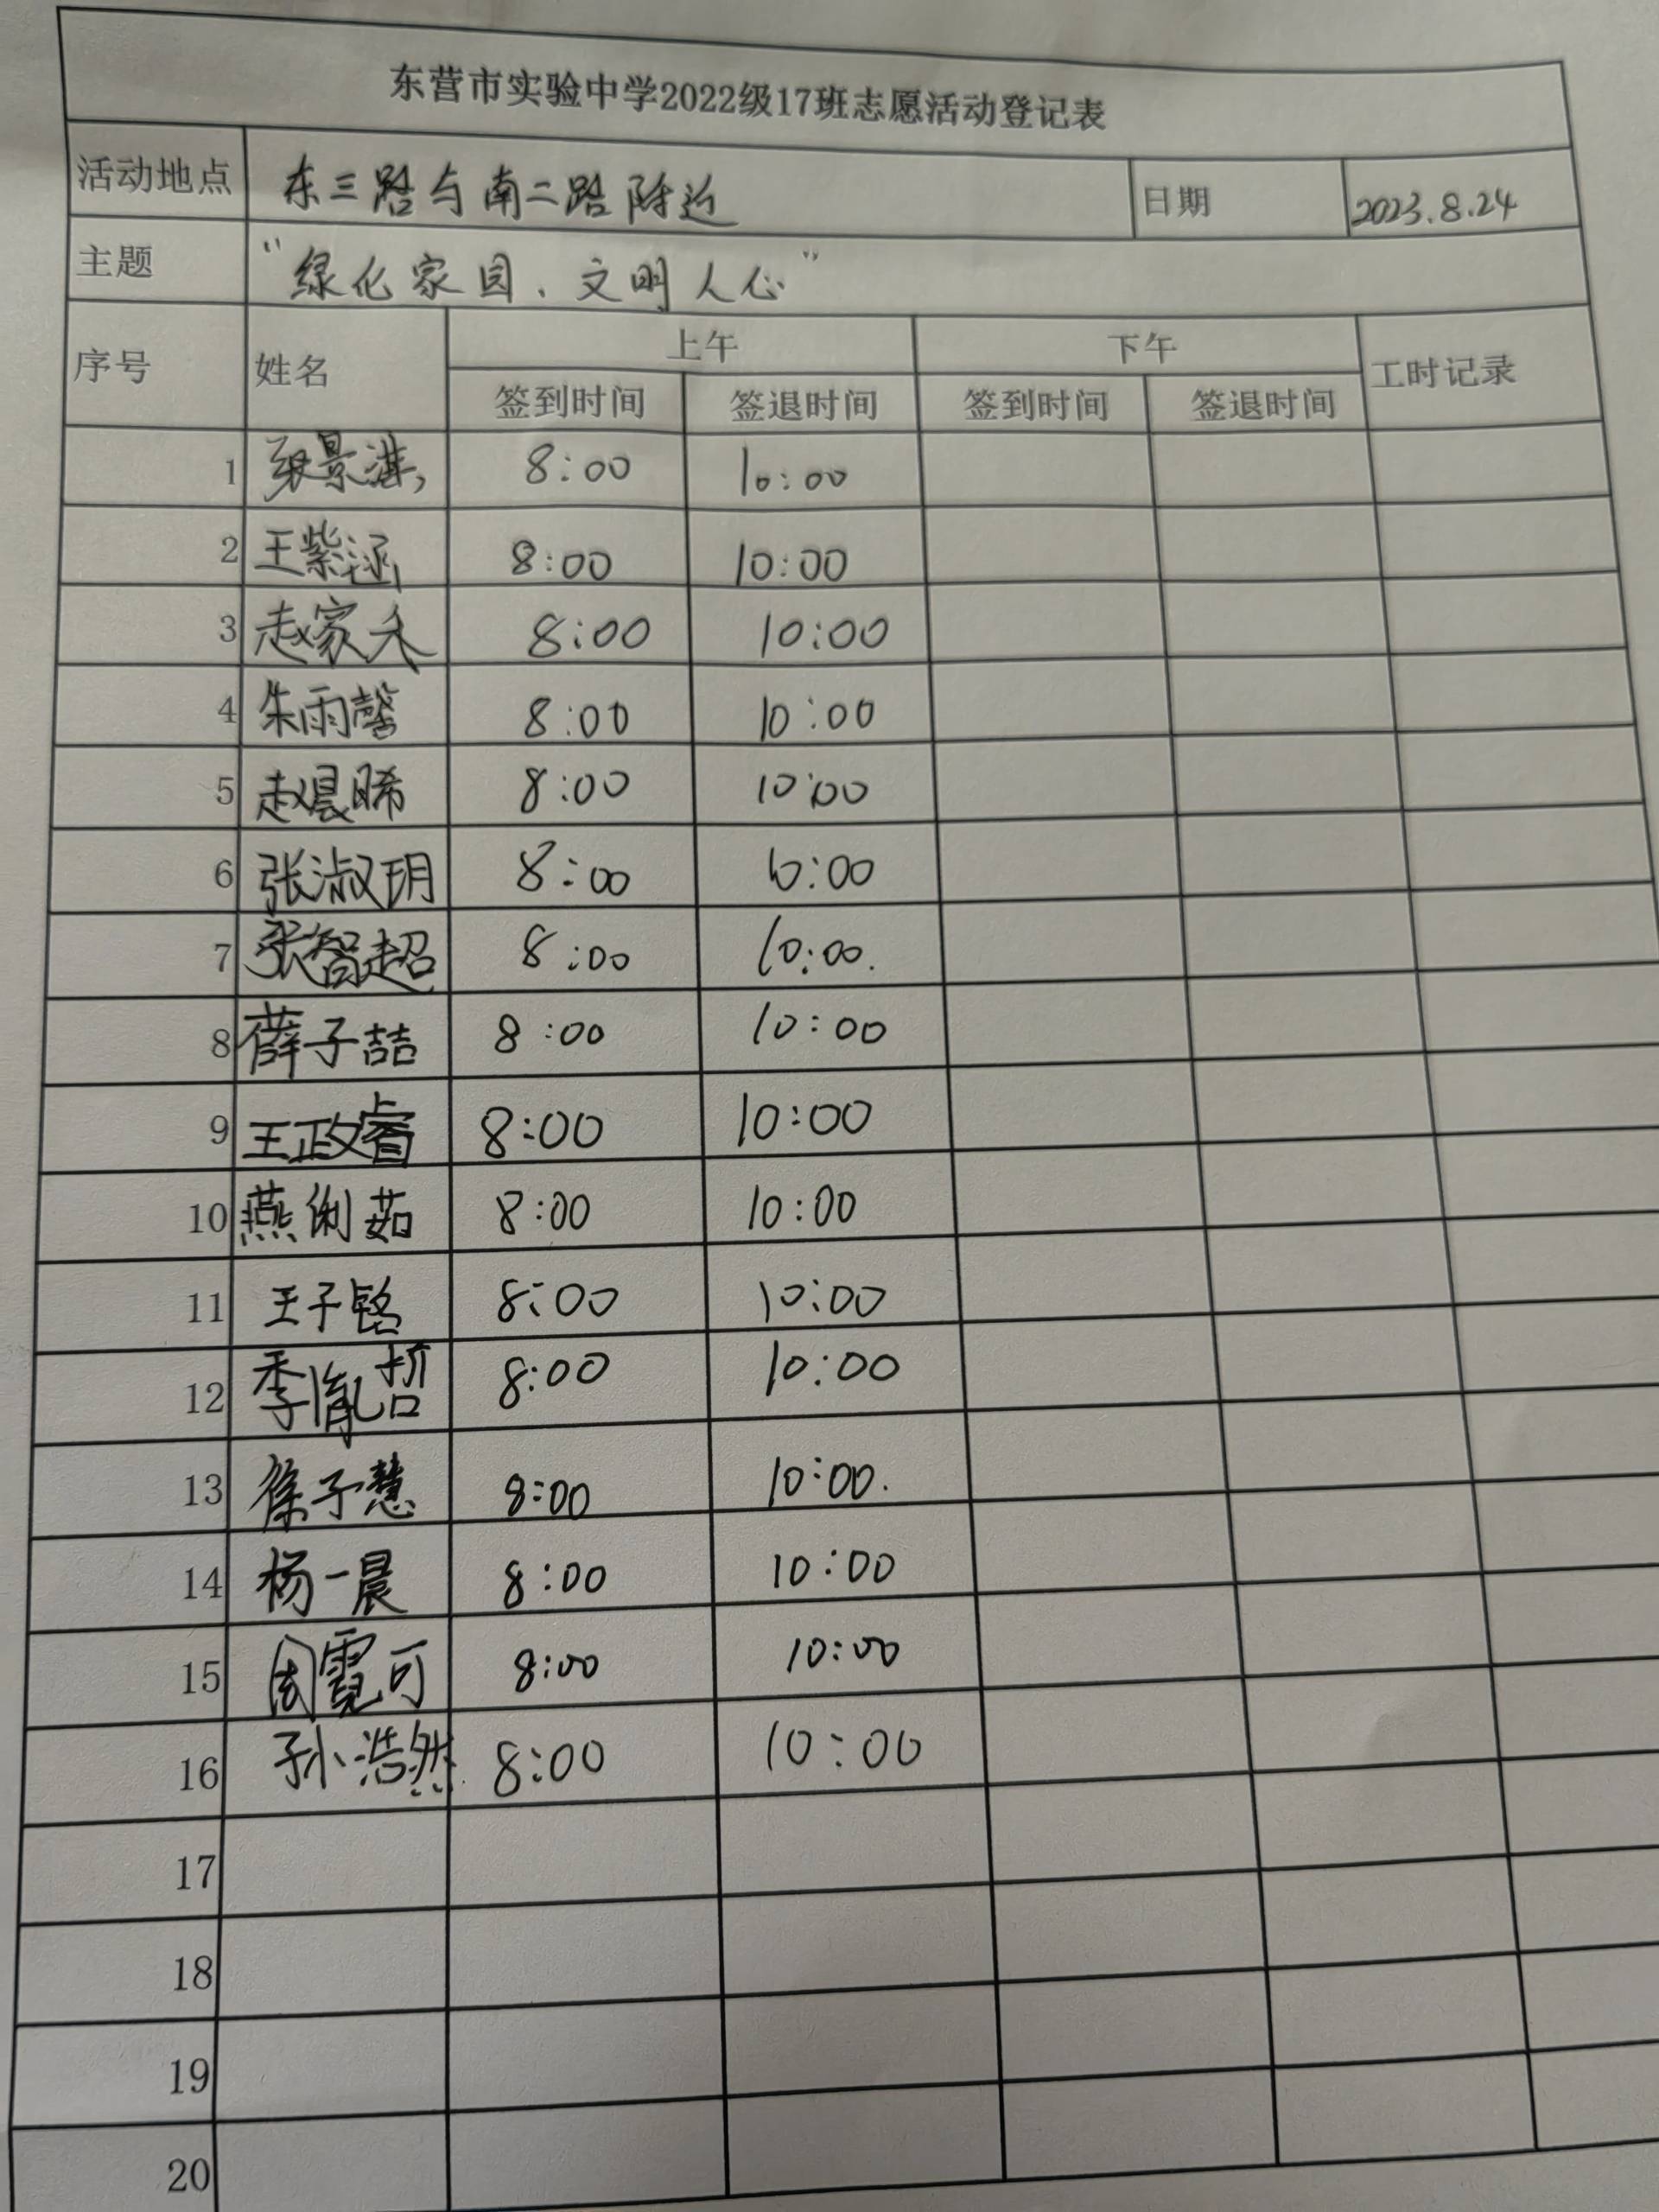 东营市实验中学2022级17班志愿活动登记表
活动地点 东三路与南二路附近 日期 2023.8.24
主题 "绿化家园、文明人心"
序号 姓名 上午 下午 工时记录
签到时间 签退时间 签到时间 签退时间
1 景淇 8:00 10:00
2 王紫涵 8:00 10:00
3 赵家禾 8:00 10:00
4 朱雨馨 8:00 10:00
5 赵晨晞 8:00 10:00
6 张淑玥 8:00 10:00
7 张智超 8:00 10:00.
8 薛子喆 8:00 10:00
9 王政睿 8:00 10:00
10 燕俐茹 8:00 10:00
11 王子铭 8:00 10:00
12 季胤哲 8:00 10:00
13 徐子慧 8:00 10:00.
14 杨一晨 8:00 10:00
15 周霓可 8:00 10:00
16 孙浩然 8:00 10:00
17
18
19
20